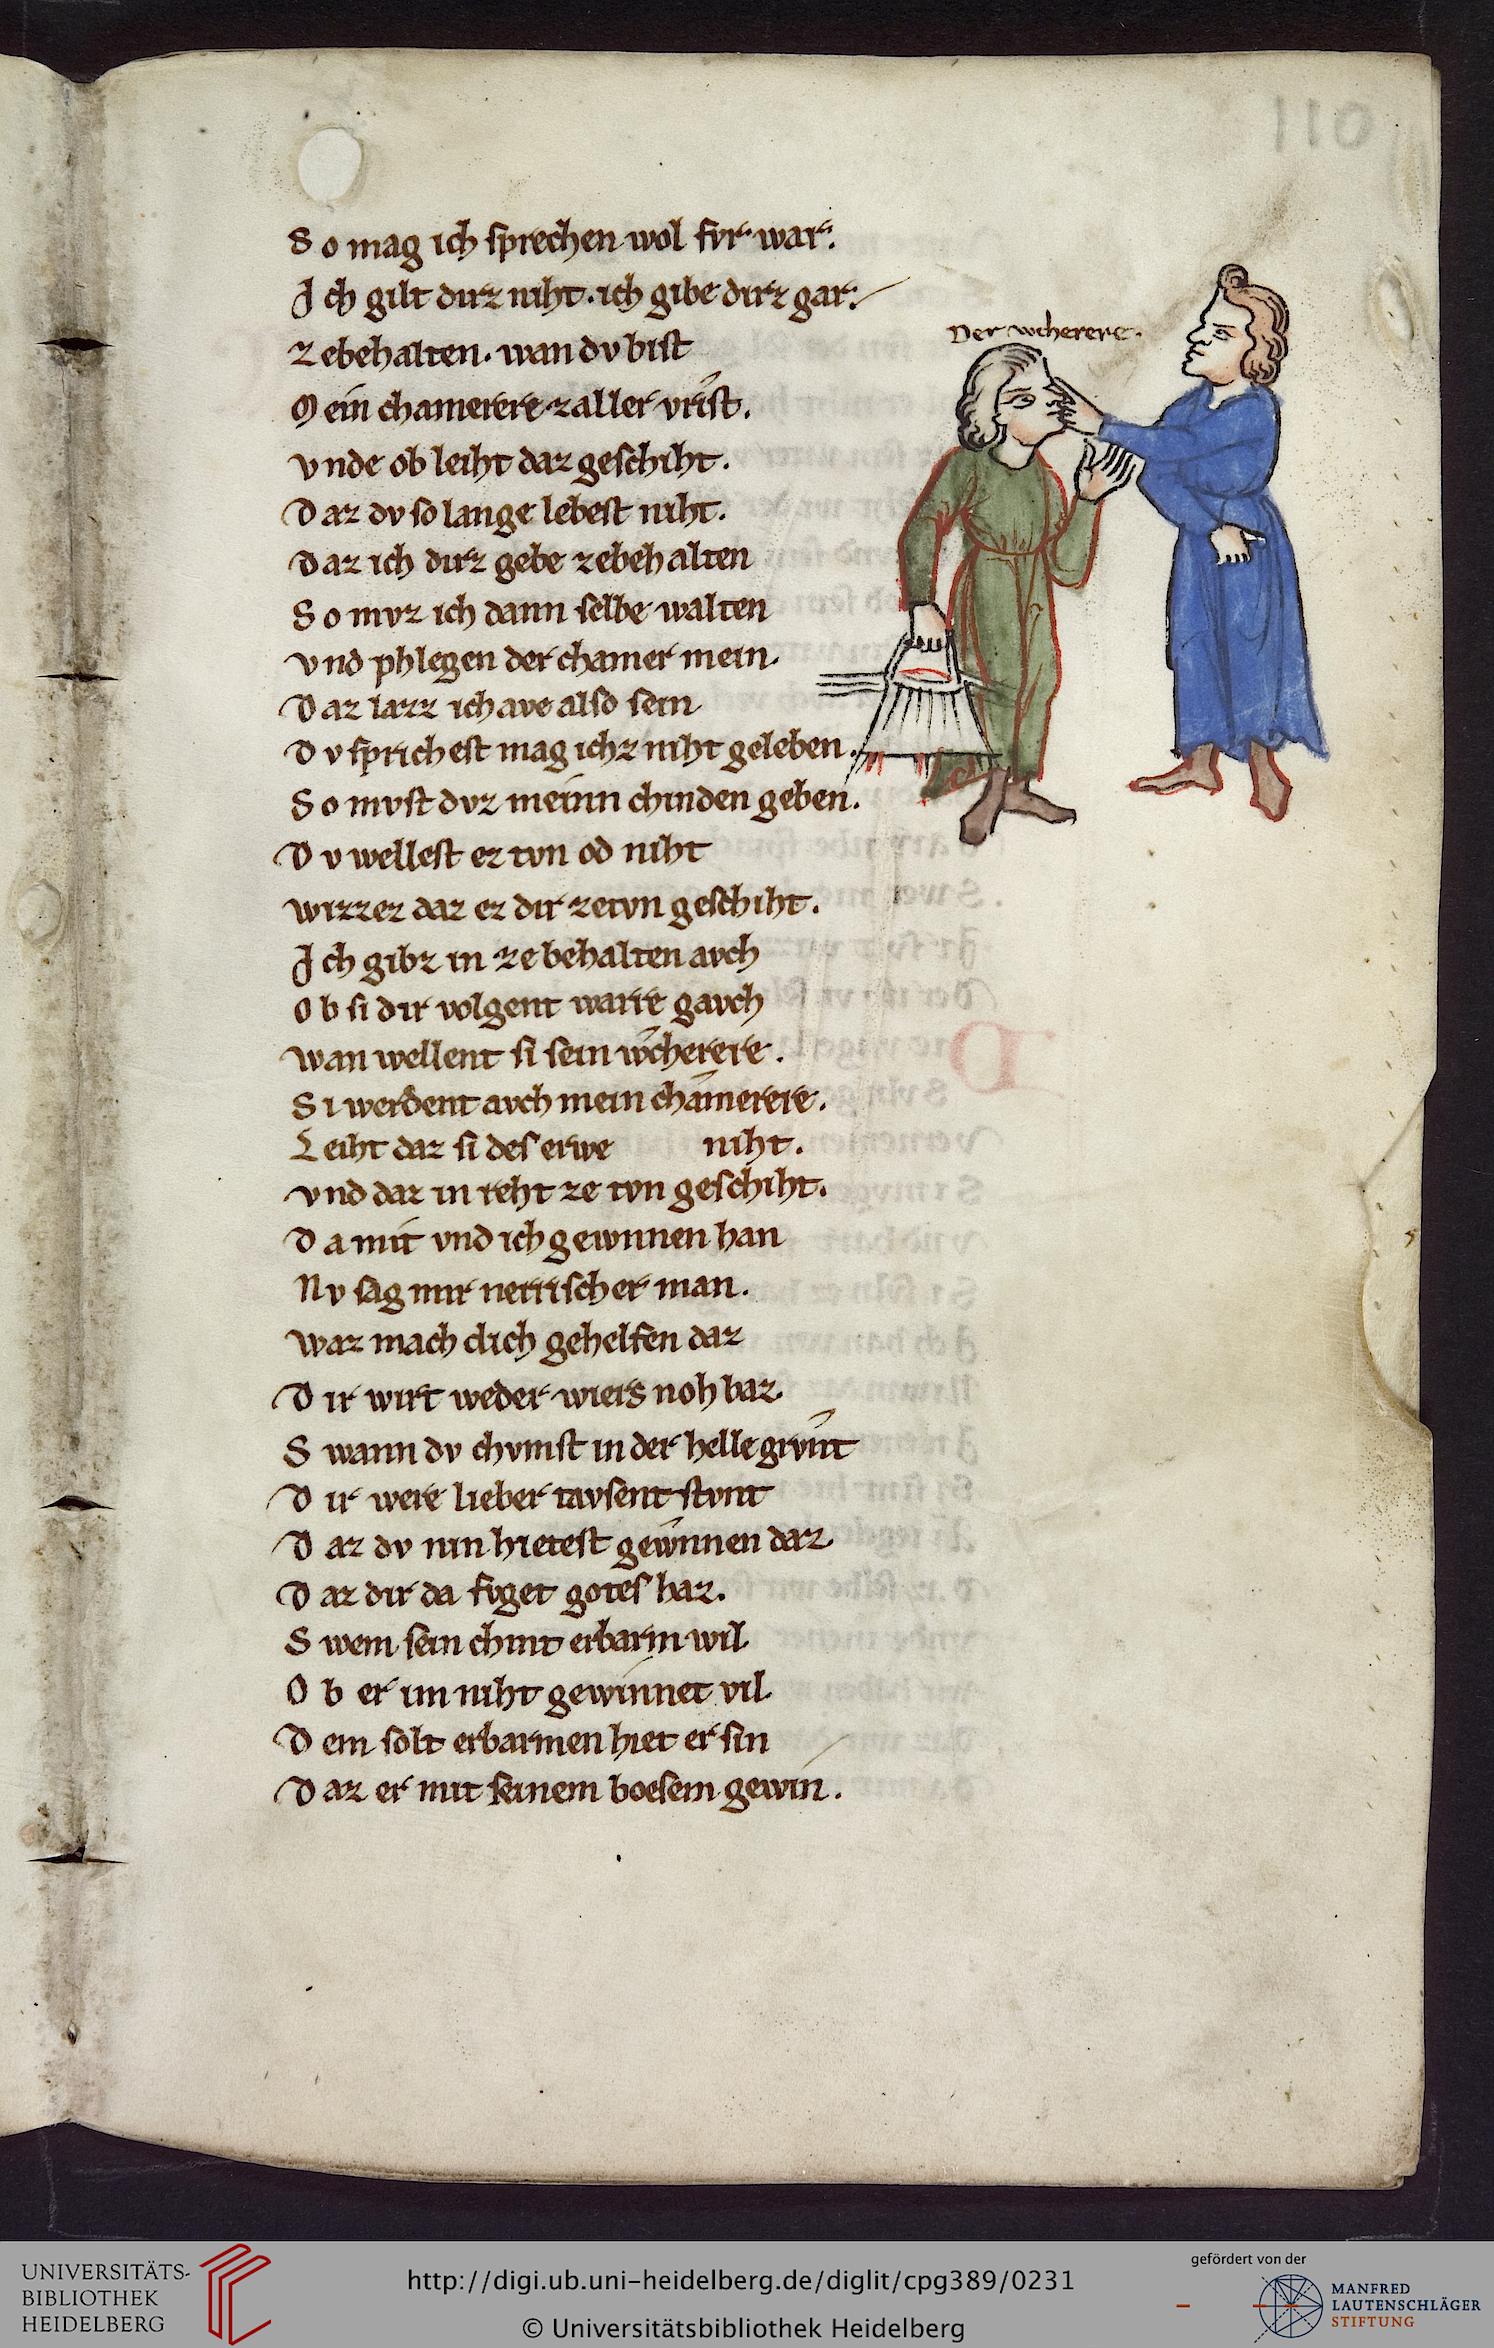 110
So mag ich sprechen wol fvr war.
Ich gilt dirz niht. ich gibe dirz gar.
Zebehalten. wan dv bist
Mein chamerere zaller vrist.
Vnde ob leiht daz geschiht.
Daz dv so lange lebest niht.
Daz ich dirz gebe zebehalten
So mvz ich dann selbe walten
Vnd phlegen der chamer mein.
Daz lazz ich ave also sein
Dv sprichest mag ichz niht geleben.
So mvst dvz meinn chinden geben.
Dv wellest ez tvn od niht
Wizzez daz ez dir zetvn geschiht.
Ich gibz in ze behalten avch
Ob si dir volgent warre gavch
Wan wellent si sein wcherere.
Si werdent avch mein chamerere.
Leiht daz si des erwe niht.
Vnd daz in reht ze tvn geschiht.
Da mit vnd ich gewnnen han
Nv sag mir nerrischer man.
Waz mach dich gehelfen daz
Dir wirt weder wiers noh baz.
Swann dv chvmst in der helle grvnt
Dir were lieber tavsent stvnt
Daz dv nin hietest gewnnen daz
Daz dir da fvget gotes haz.
Swem sein chint erbarm wil
Ob er im niht gewinnet vil.
Dem solt erbarmen hiet er sin
Daz er mit seinem boesem gewin.
Der wcherere.
UNIVERSITÄTS-
BIBLIOTHEK
HEIDELBERG
http://digi.ub.uni-heidelberg.de/diglit/cpg389/0231
© Universitätsbibliothek Heidelberg
gefördert von der
MANFRED
LAUTENSCHLÄGER
STIFTUNG